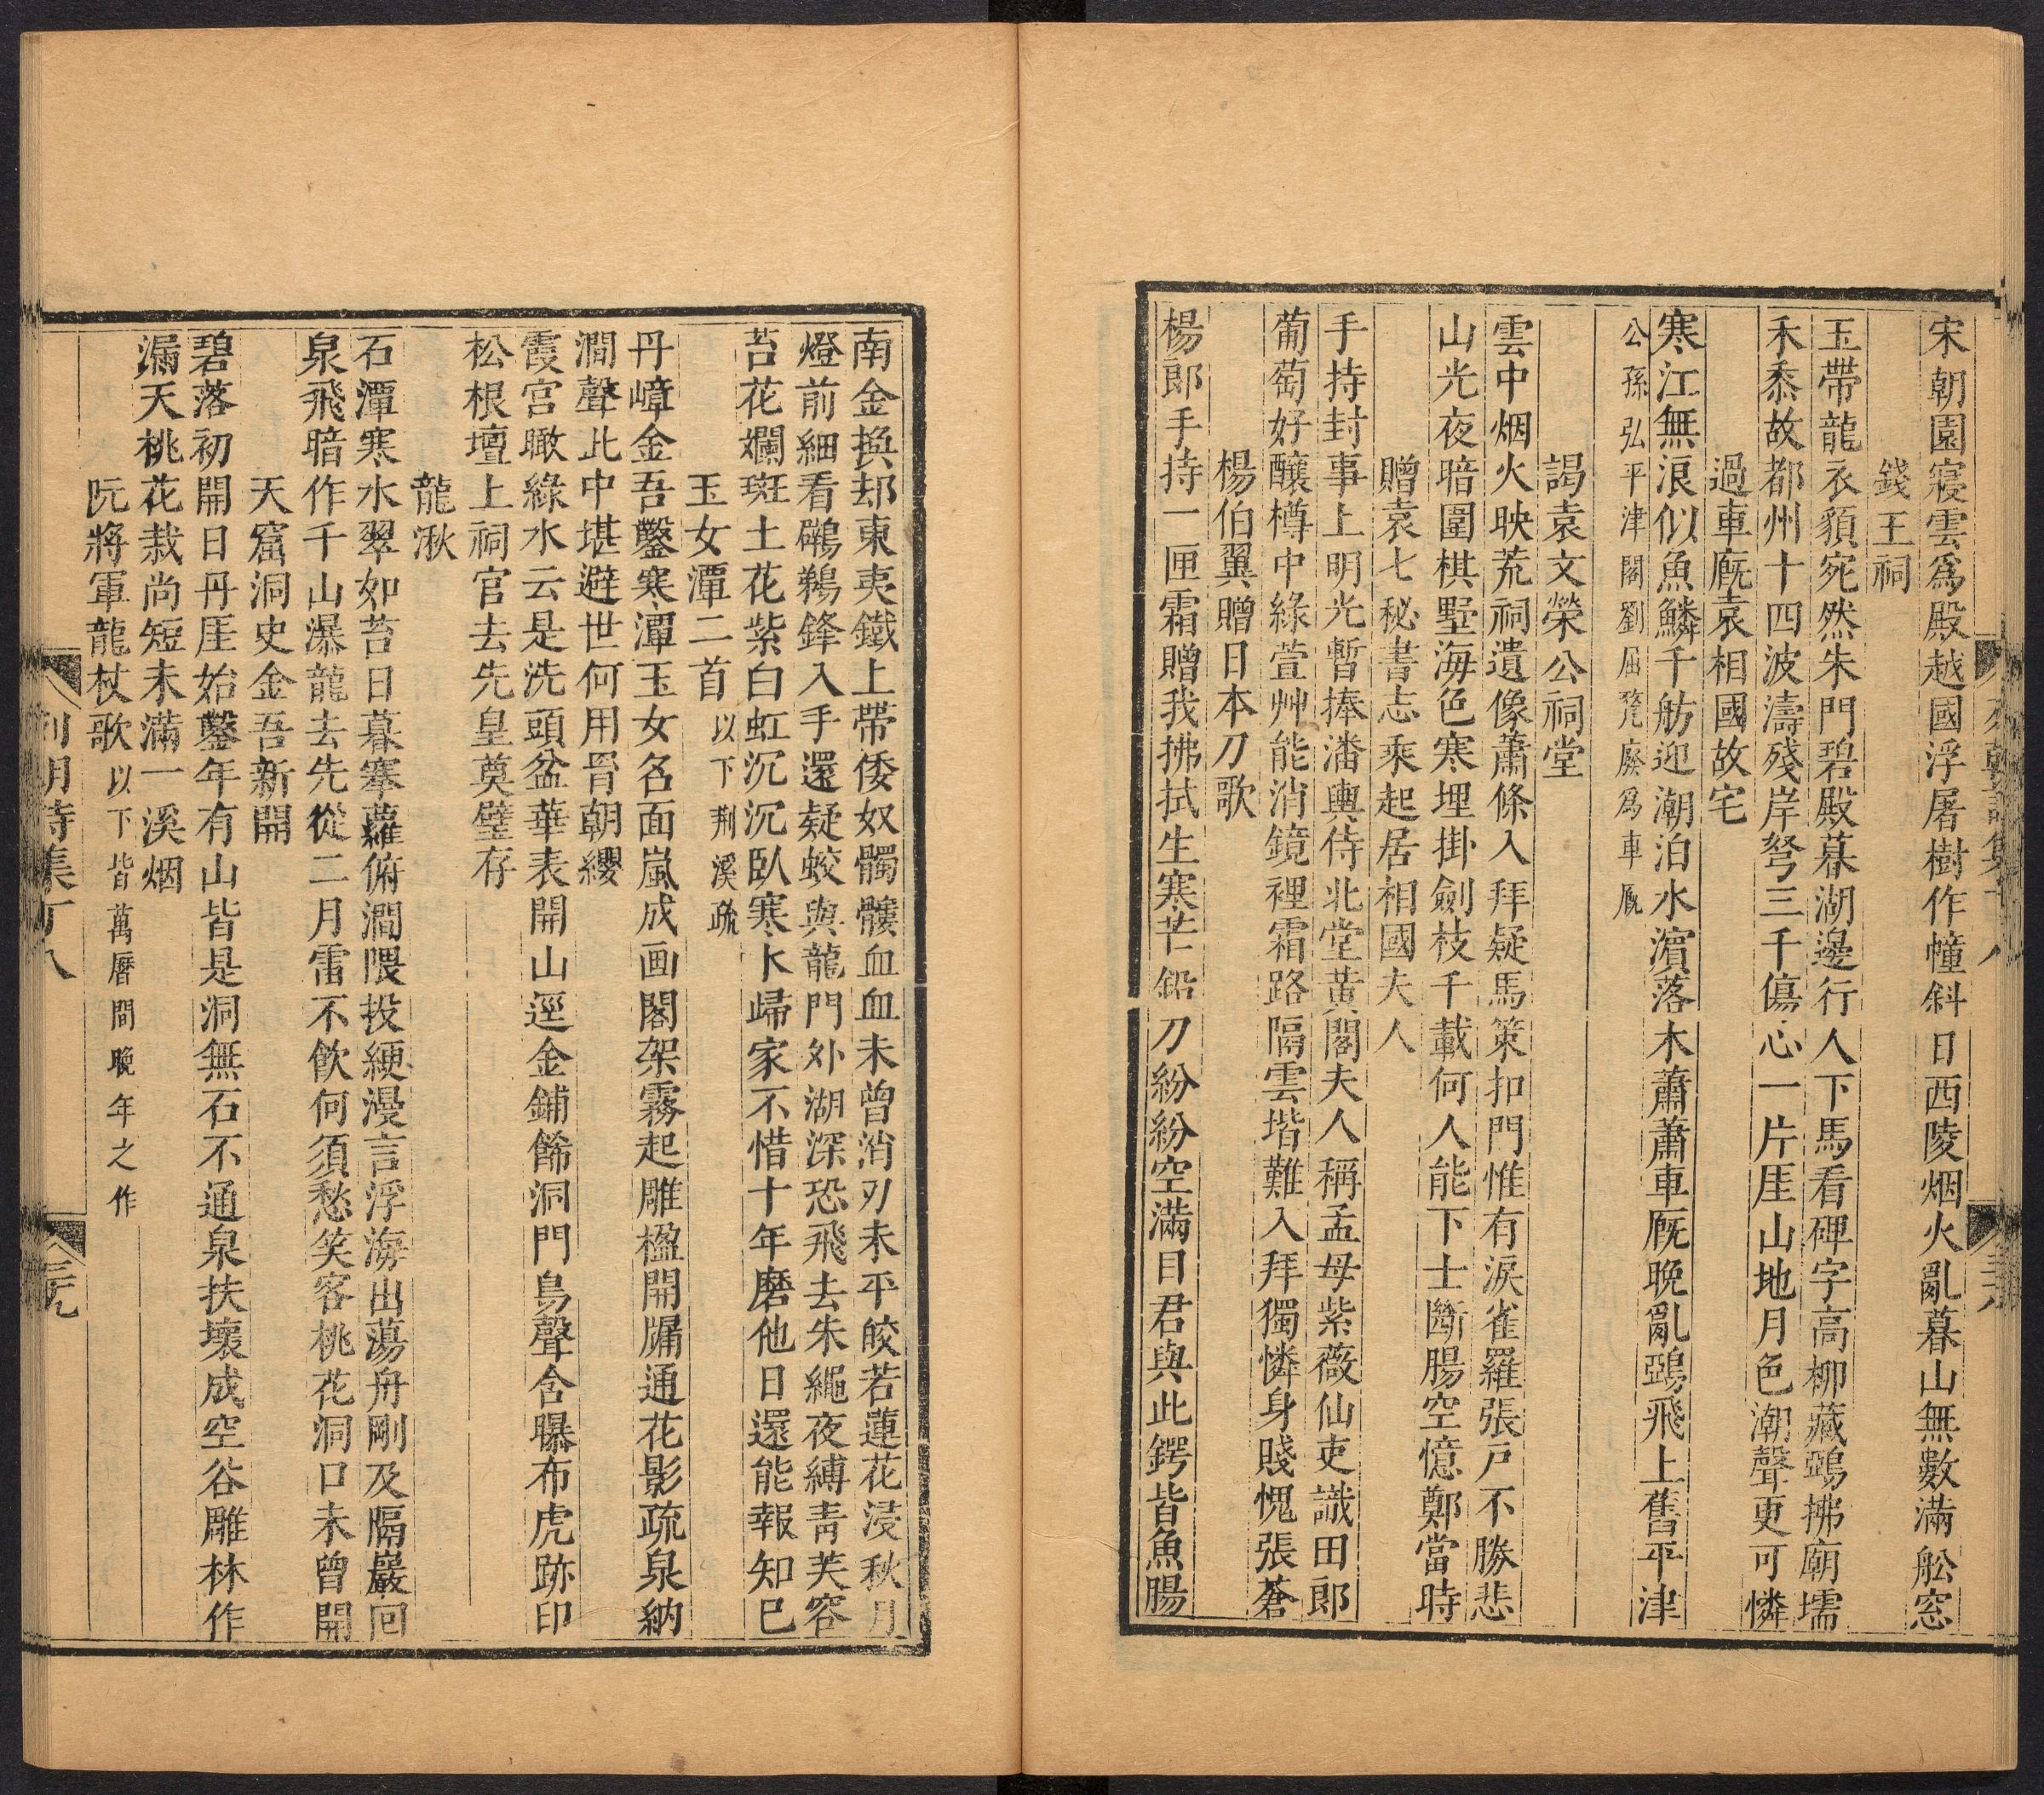 宋朝園寢雲爲殿越國浮屠樹作幢斜日西陵烟火亂暮山無數滿舩窓
錢王祠
玉帶龍衣貌宛然朱門碧殿暮湖邊行人下馬看碑字高柳藏鵶拂廟壖
禾黍故都州十四波濤殘岸弩三千傷心一片厓山地月色潮聲更可憐
過車廐袁相國故宅
寒江無浪似魚鱗千舫迎潮泊水濵落木蕭蕭車厩晚亂鵶飛上舊平津
公孫弘平津閣劉屈氂廢爲車厩
謁袁文榮公祠堂
雲中烟火映荒祠遺像蕭條入拜疑馬策扣門惟有淚雀羅張戸不勝悲
山光夜暗圍棋墅海色寒埋掛劍枝千載何人能下士斷腸空憶鄭當時
贈袁七秘書志乘起居相國夫人
手持封事上明光暫捧潘輿侍北堂黃閣夫人稱孟母紫薇仙吏識田郎
葡萄好釀樽中綠萱艸能消鏡裡霜路隔雲堦難入拜獨憐身賤愧張蒼
楊伯翼贈日本刀歌
楊郎手持一匣霜贈我拂拭生寒芒鉛刀紛紛空滿目君與此鍔皆魚腸
南金換却東夷鐵上帶倭奴髑髏血血未曾消刃未平皎若蓮花浸秋月
燈前細看鸊鵜鋒入手還疑蛟與龍門外湖深恐飛去朱繩夜縛青芙容
苔花斕斑土花紫白虹沉沉臥寒水歸家不惜十年磨他日還能報知巳
玉女潭二首以下荆溪疏
丹嶂金吾鑿寒潭玉女名面嵐成画閣架霧起雕楹開牖通花影疏泉納
澗聲此中堪避世何用冐朝纓
霞宮瞰綠水云是洗頭盆華表開山逕金鋪餙洞門鳥聲含曝布虎跡印
松根壇上祠官去先皇奠璧存
龍湫
石潭寒水翠如苔日暮搴蘿俯澗隈投綆漫言浮海出蕩舟剛及隔巖回
泉飛暗作千山瀑龍去先從二月雷不飲何須愁笑客桃花洞口未曾開
天窟洞史金吾新開
碧落初開日丹厓始鑿年有山皆是洞無石不通泉扶壤成空谷雕林作
漏天桃花栽尚短未滿一溪烟
阮將軍龍杖歌以下皆萬曆間晚年之作